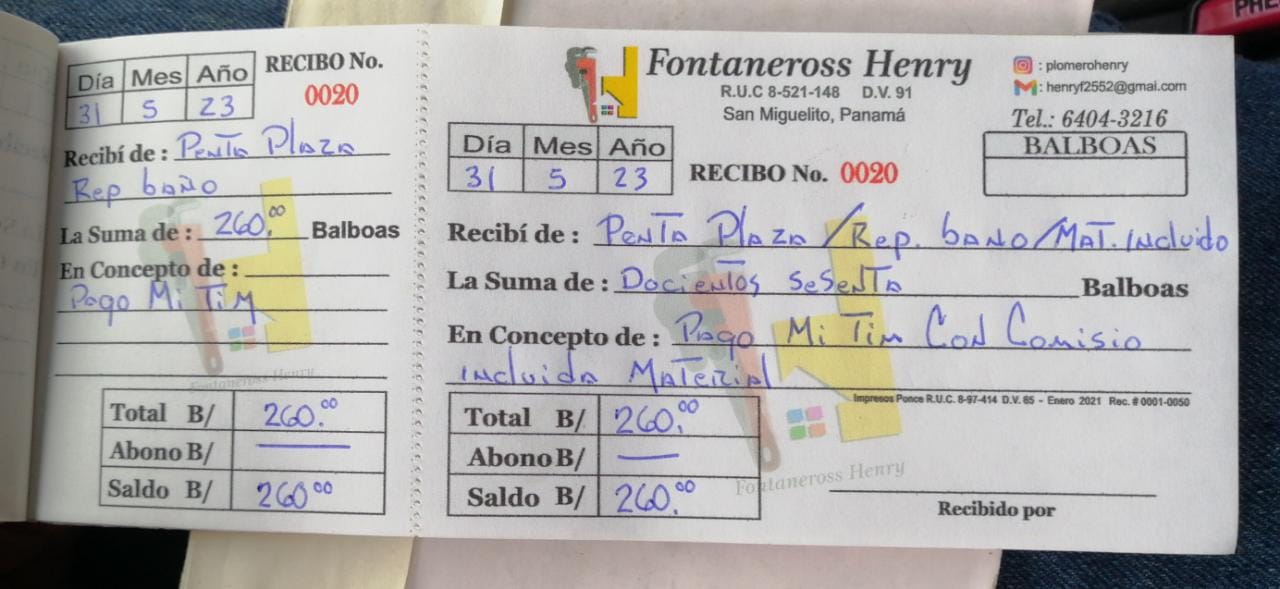 Día Mes Año
31 5 23
RECIBO No.
0020
Recibí de : Penta Plaza
Rep baño
La Suma de : 260.00 Balboas
En Concepto de :
Pago Mi Tim
Fontaneross Henry
Total B/ 260.00
Abono B/ —
Saldo B/ 260.00
Fontaneross Henry
R.U.C 8-521-148 D.V. 91
San Miguelito, Panamá
: plomerohenry
: henryf2552@gmai.com
Tel.: 6404-3216
BALBOAS
Día Mes Año
31 5 23
RECIBO No. 0020
Recibí de : Penta Plaza / Rep. baño / Mat. incluido
La Suma de : Docientos sesenta Balboas
En Concepto de : Pago Mi Tim Con Comisio
incluida Material
Impresos Ponce R.U.C. 8-97-414 D.V. 65 - Enero 2021 Rec. # 0001-0050
Total B/. 260.00
Abono B/ —
Saldo B/ 260.00
Fontaneross Henry
Recibido por